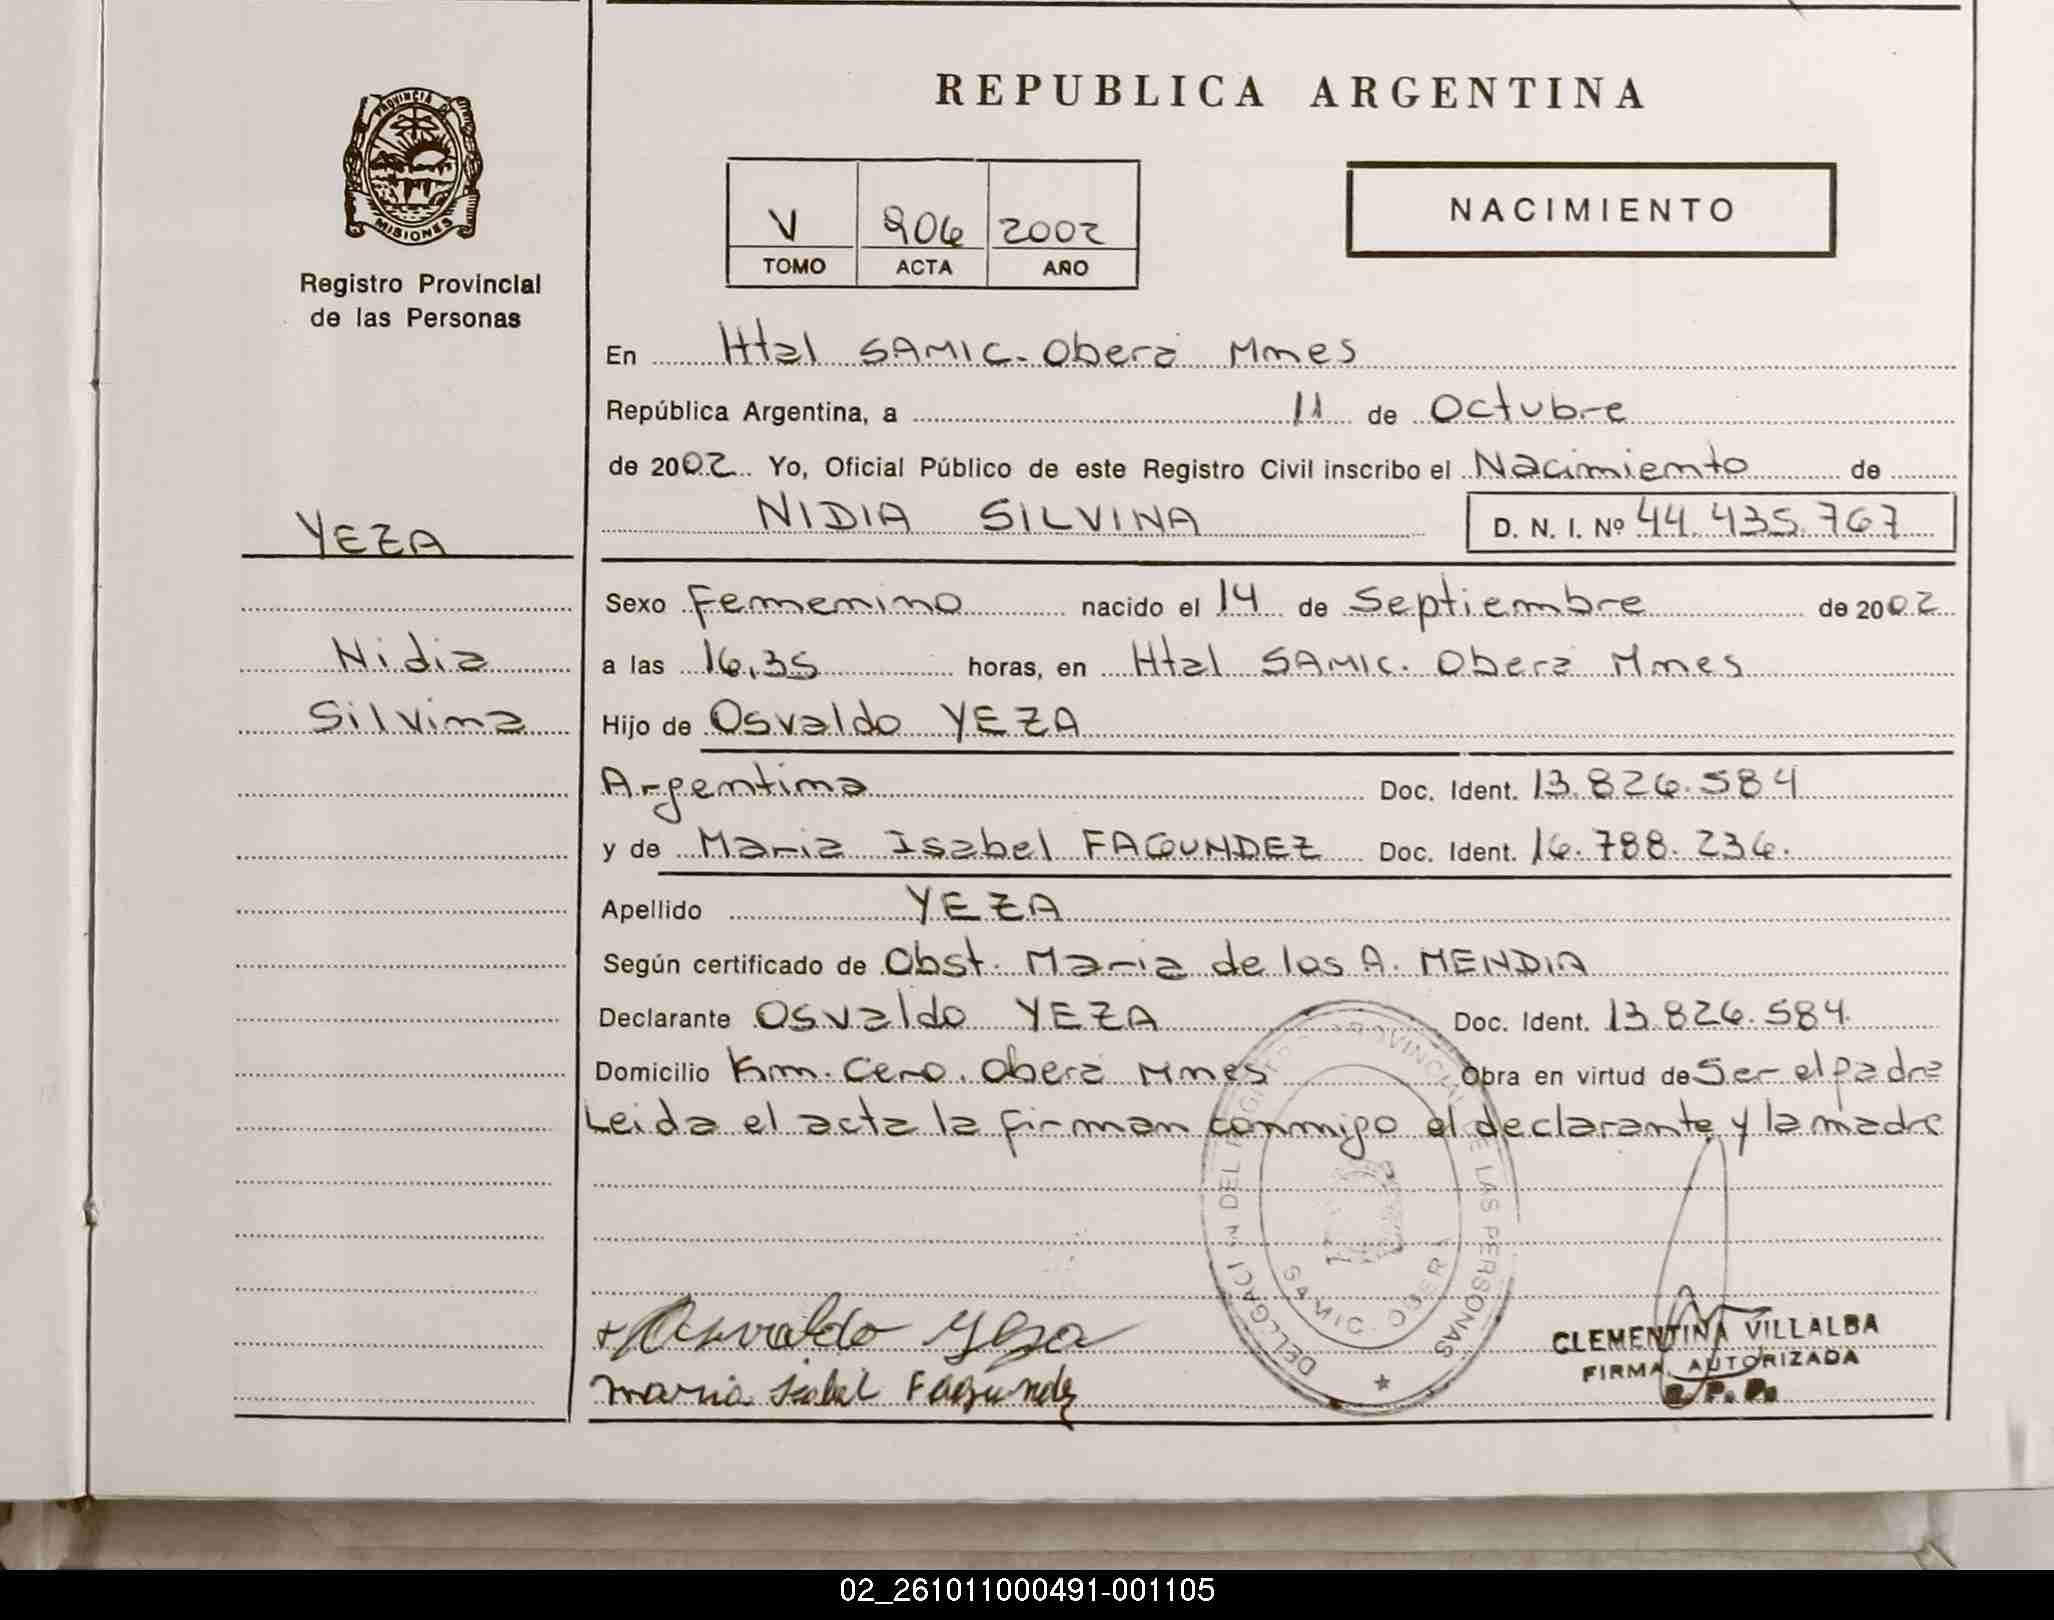 REPUBLICA ARGENTINA
PROVINCIA DE
MISIONES
Registro Provincial
de las Personas
V 906 2002
TOMO ACTA AÑO
NACIMIENTO
En Htal SAMIC. Oberá Mnes
República Argentina, a 11 de Octubre
de 2002 Yo, Oficial Público de este Registro Civil inscribo el Nacimiento de
NIDIA SILVINA D. N. I. Nº 44.435.767
YEZA
Nidia
Silvina
Sexo Femenino nacido el 14 de Septiembre de 2002
a las 16,35 horas, en Htal SAMIC. Oberá Mnes
Hijo de Osvaldo YEZA
Argentina Doc. Ident. 13.826.584
y de Maria Isabel FAGUNDEZ Doc. Ident. 16.788.236.
Apellido YEZA
Según certificado de Obst. Maria de los A. MENDIA
Declarante Osvaldo YEZA Doc. Ident. 13.826.584.
Domicilio Km. Cero. Oberá Mnes Obra en virtud de Ser el padre
Leida el acta la firman conmigo el declarante y la madre
DELEGACI N DEL REGISTRO PROVINCIAL DE LAS PERSONAS
SAMIC. OBERA
Osvaldo Yeza
maria Isabel Fagundez
CLEMENTINA VILLALBA
FIRMA AUTORIZADA
R. P. P.
02_261011000491-001105